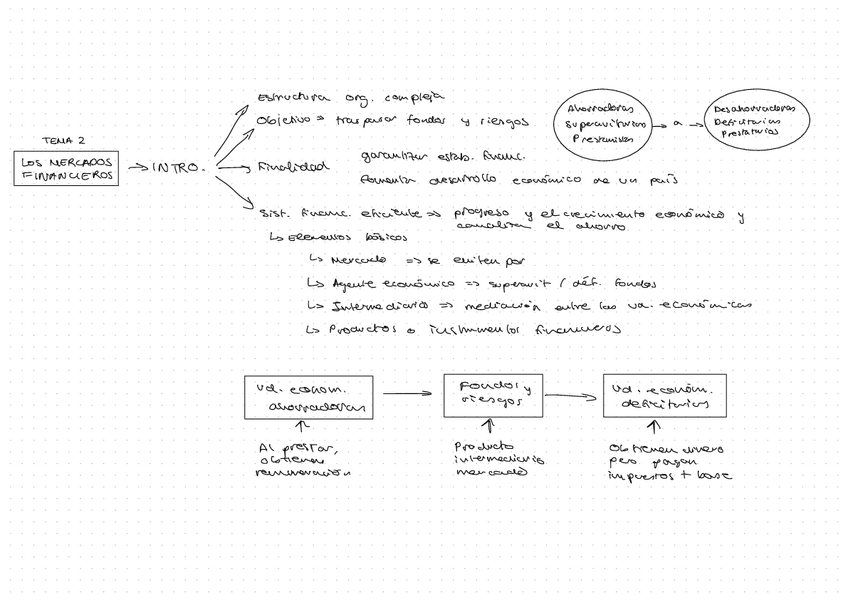 TEMA 2
LOS MERCADOS
FINANCIEROS
INTRO.
Estructura org. compleja
Objetivo => traspasar fondos y riesgos
Ahorradoras
Superavitarias
Prestamistas
a
Desahorradoras
Deficitarias
Prestatarias
Finalidad
garantizar estab. financ.
fomentar desarrollo económico de un país
Sist. financ. eficiente => progreso y el crecimiento económico y
canaliza el ahorro
↳ Elementos básicos
↳ Mercado => se emiten por
↳ Agente económico => superavit / déf. fondos
↳ Intermediario => mediación entre las ud. económicas
↳ Productos o instrumentos financieros
Ud. econom.
ahorradoras
Fondos y
riesgos
Ud. económ.
deficitarias
Al prestar,
obtienen
remuneración
Producto
intermediario
mercado
Obtienen dinero
pero pagan
impuestos + base